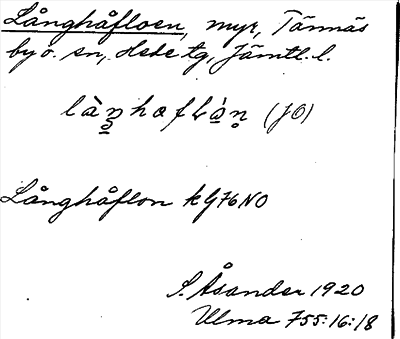 Långhåfloen, myr, Tännäs
by o. sn, Hede tg, Jämtl. l.
(JO)
Långhåflon kG76NO
S. Åsander 1920
Ulma 755:16:18